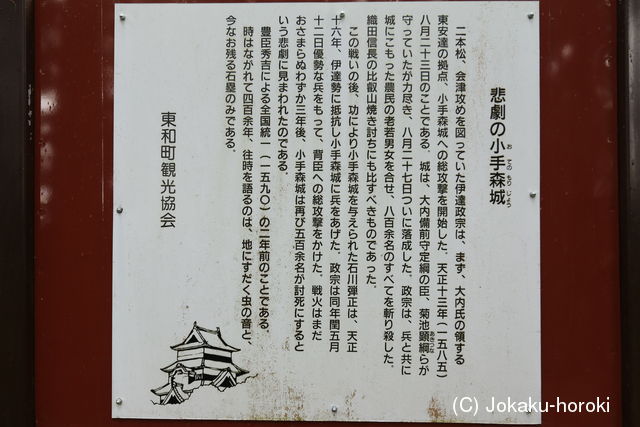 悲劇の小手森城
お での もり じょう
二本松、会津攻めを図っていた伊達政宗は、まず、大内氏の領する
東安達の拠点、小手森城への総攻撃を開始した。天正十三年（一五八五）
八月二十三日のことである。城は、大内備前守定綱の臣、菊池顕綱らが
守っていたが力尽き、八月二十七日ついに落成した。政宗は、兵と共に
城にこもった農民の老若男女を合せ、八百余名のすべてを斬り殺した。
織田信長の比叡山焼き討ちにも比すべきものであった。
この戦いの後、功により小手森城を与えられた石川弾正は、天正
十六年、伊達勢に抵抗し小手森城に兵をあげた。政宗は同年閏五月
十二日優勢な兵をもって、背臣への総攻撃をかけた。戦火はまだ
おさまらぬわずか三年後、小手森城は再び五百余名が討死にすると
いう悲劇に見まわれたのである。
豊臣秀吉による全国統一（一五九〇）の二年前のことである。
時はながれて四百余年、往時を語るのは、地にすだく虫の音と、
今なお残る石塁のみである。
東和町観光協会
(C) Jokaku-horoki